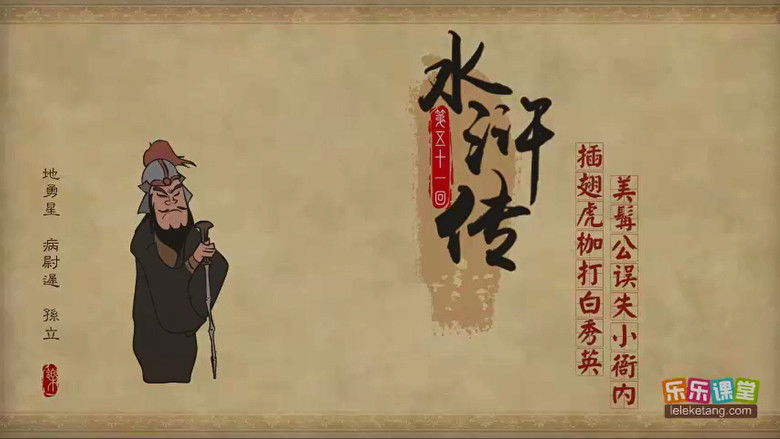 水浒传
第五十一回
插翅虎枷打白秀英
美髯公误失小衙内
地勇星 病尉遲 孫立
乐乐课堂
leleketang.com